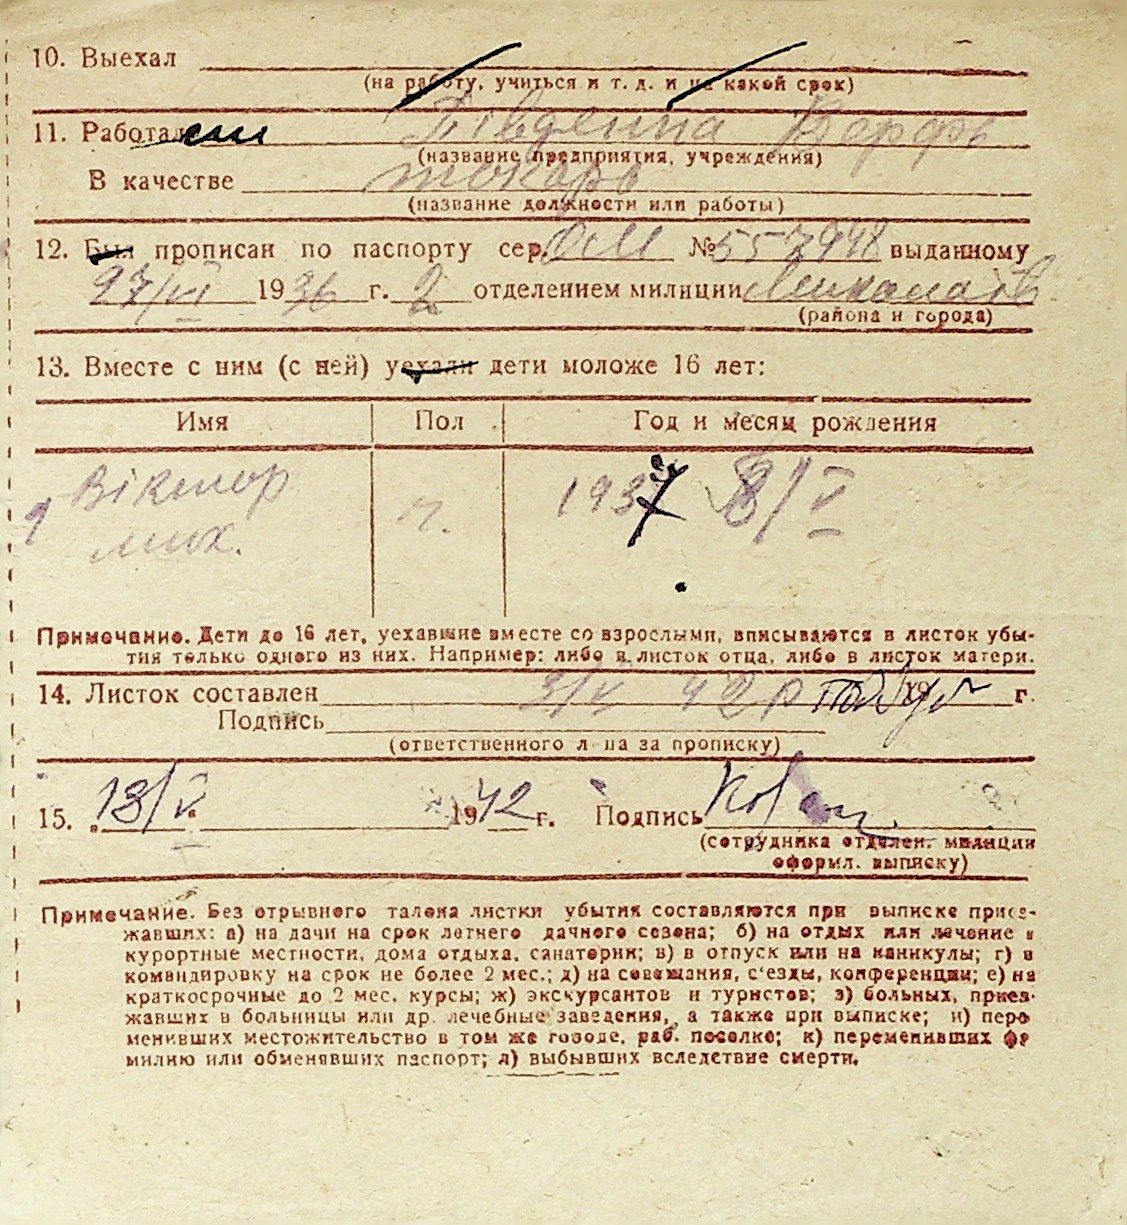 10. Выехал
(на работу, учиться и т. д. и на какой срок)
11. Работал Південна Верфь
(название предприятия, учреждения)
В качестве токарь
(название должности или работы)
12. Был прописан по паспорту сер. № выданному
27/VI 1936 г. 2 отделением милиции Миколаїв
(района и города)
13. Вместе с ним (с ней) уехали дети моложе 16 лет:
Имя Пол Год и месяц рождения
1 Віктор ч. 1937 8/V
мих.
Примечание. Дети до 16 лет, уехавшие вместе со взрослыми, вписываются в листок убы-
тия только одного из них. Например: либо в листок отца, либо в листок матери.
14. Листок составлен 3/V 42 р 19 г.
Подпись
(ответственного лица за прописку)
15. 13/V 1942 г. Подпись
(сотрудника отделен. милиции
оформл. выписку)
Примечание. Без отрывного талона листки убытия составляются при выписке приез-
жавших: а) на дачи на срок летнего дачного сезона; б) на отдых или лечение в
курортные местности, дома отдыха, санатории; в) в отпуск или на каникулы; г) в
командировку на срок не более 2 мес.; д) на совещания, с'езды, конференции; е) на
краткосрочные до 2 мес. курсы; ж) экскурсантов и туристов; з) больных, приез-
жавших в больницы или др. лечебные заведения, а также при выписке; и) пере
менивших местожительство в том же городе, раб. поселке; к) переменивших фа
милию или обменявших паспорт; л) выбывших вследствие смерти.